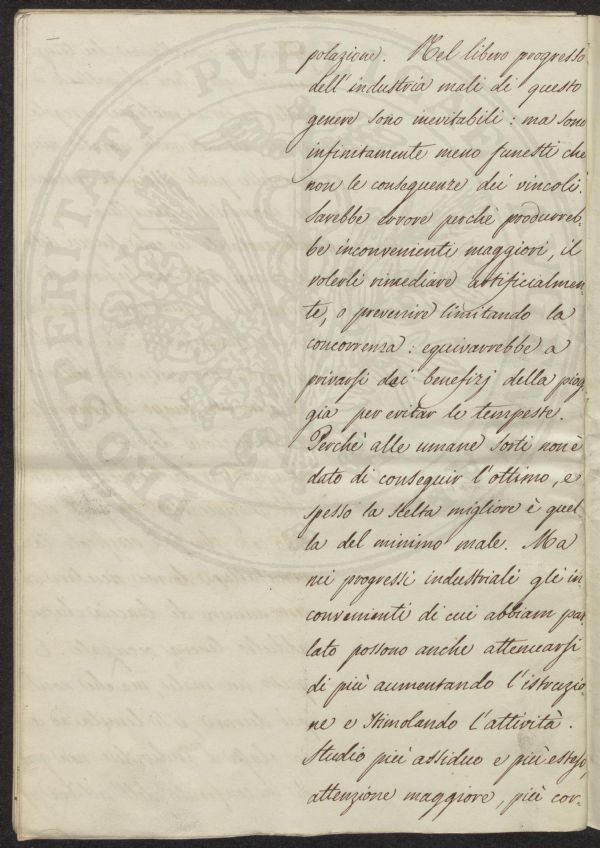 polazione. Nel libero progresso
dell'industria mali di questo
genere sono inevitabili: ma sono
infinitamente meno funesti che
non le conseguenze dei vincoli.
Sarebbe errore perchè produrreb-
be inconvenienti maggiori, il
volerli rimediare artificialmen-
te, o prevenire limitando la
concorrenza: equivarrebbe a
privarsi dei benefizj della piog
gia per evitar le tempeste.
Perchè alle umane sorti non è
dato di conseguir l'ottimo, e
spesso la scelta migliore è quel
la del minimo male. Ma
nei progressi industriali gli in
convenienti di cui abbiam par
lato possono anche attenuarsi
di più aumentando l'istruzio
ne e stimolando l'attività.
Studio più assiduo e più esteso,
attenzione maggiore, più cor-
PROSPERITATI PUBLICAE